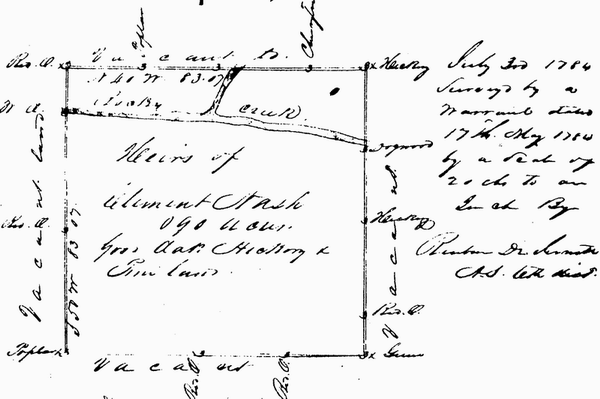 Poplar
Vacant
Red O. x
Hickory
N 40 W 83.07
Rocky
Creek
W O.
Dogwood
Vacant land
Heirs of
Clement Nash
690 Acres.
Good Oak Hickory &
Pine land
Red O.
S 50 W 83.07
Hickory
Vacant
Red O.
Poplar x
Vacant
x Gum
Red O.
Red O.
July 3rd 1784
Surveyd by a
Warrant dated
17th May 1784
by a Scale of
20 chs to an
Inch By
D. S. 6th dist.